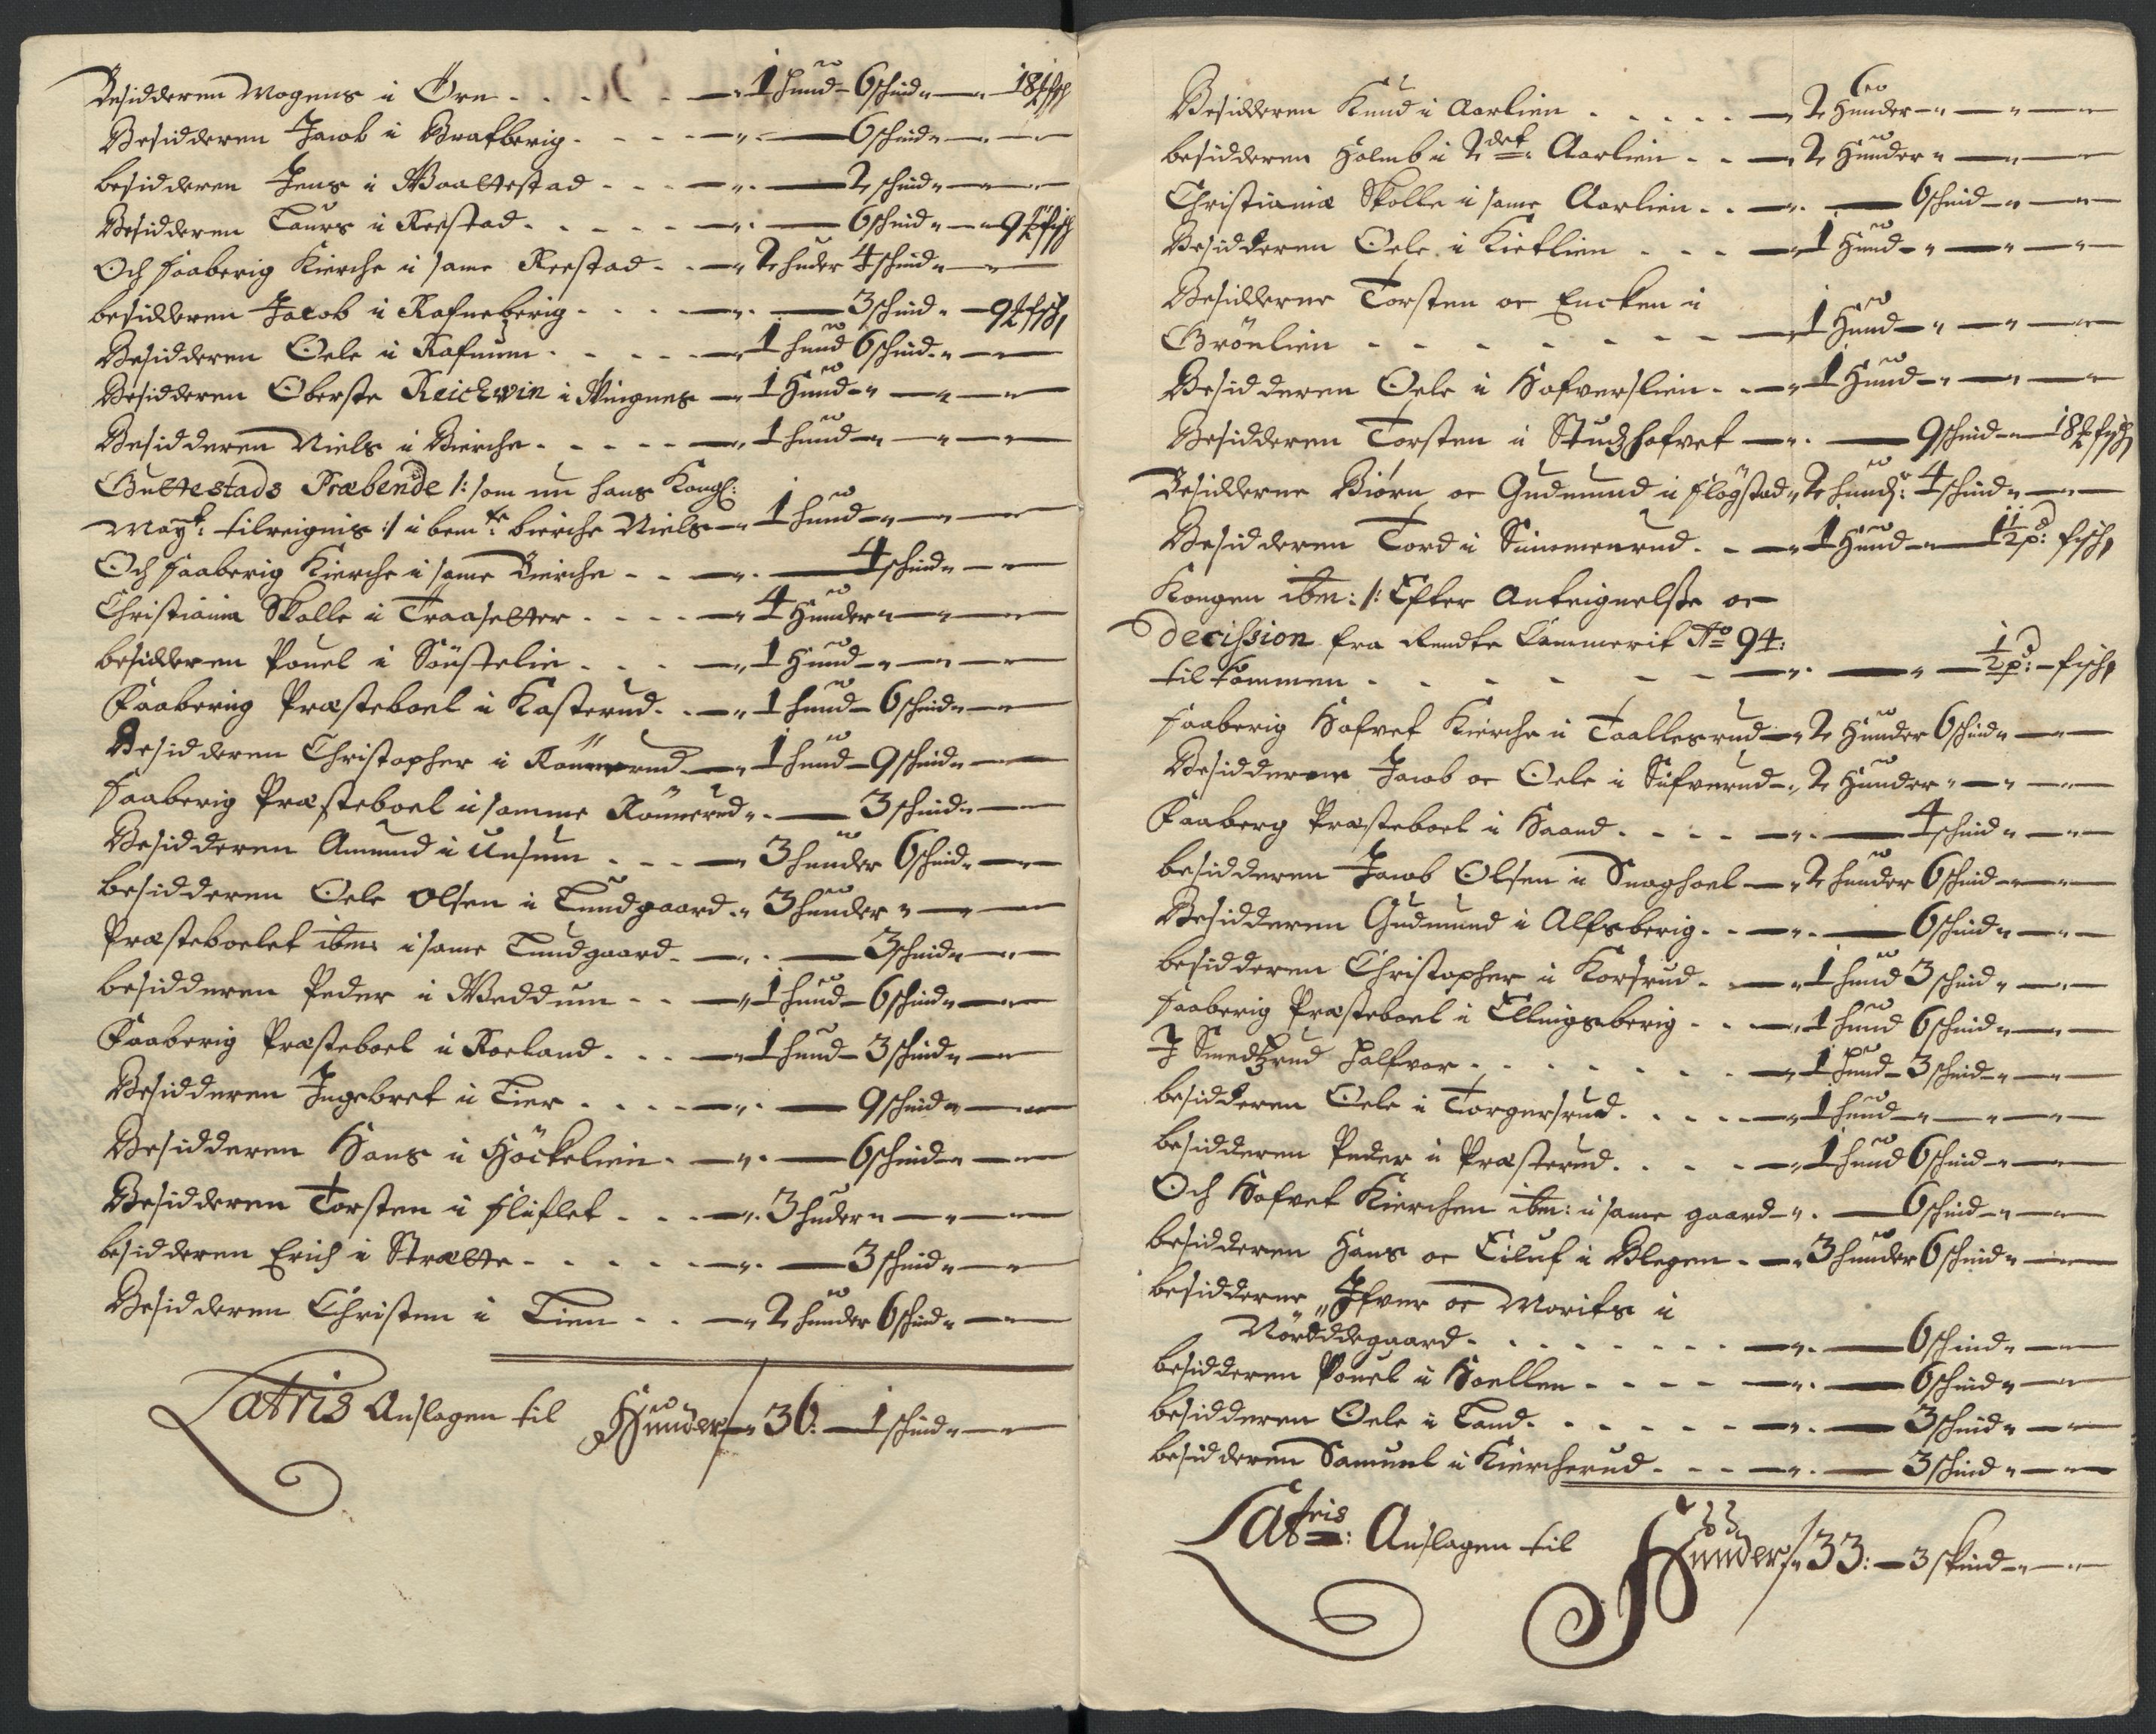 Besidderen Mogens i Öre - - - - 1 hund - 6 schind - 18 ℔ fisch
Besidderen Jacob i Brafberig - - - 6 schind
besidderen Jens i Baaltestad - - - 2 schind
Besidderen Laurs i Reestad - - - - 6 schind - 9 ℔ fisch
Och faaberig Kierche i same Reestad - - 2 huder 4 schind
besidderen Jacob i Rafneberig - - - 3 schind - 9 ℔ fisch
Besidderen Oele i Rafnum - - - - 1 hund 6 schind
Besidderen Oberste Reichwin i Wingnes - 1 Hund
Besidderen Niels i Bierche - - - - 1 hund
Gultestads Præbende /: som nu hans Kongl:
Mayt: tilreignis :/ i bemte bierche Niels - 1 hund
Och faaberig Kierche i same Bierche - - 4 schind
Christiania Skolle i Traaselter - - - 4 Hunder
besidderen Pouel i Sönstelie - - - 1 Hund
Faaberig Præsteboel i Kasterud - - 1 hund - 6 schind
Besidderen Christopher i Rönnerud - 1 hund - 9 schind
faaberig Præsteboel i samme Rönnerud - 3 schind
Besidderen Amund i Unsum - - - 3 hunder 6 schind
besidderen Oele Olsen i Lundgaard - 3 hunder
Præsteboelet ibm: i same Lundgaard - 3 schind
besidderen Peder i Weddum - - 1 hund - 6 schind
Faaberig Præsteboel i Roeland - - - 1 hund - 3 schind
Besidderen Ingebret i Lier - - - - 9 schind
Besidderen Hans i Höckelien - - 6 schind
Besidderen Torsten i fliflet - - - 3 huder
besidderen Erich i Strælte - - - - 3 schind
Besidderen Christen i Lien - - 2 hunder 6 schind
Latris Anslagen til Hunder - 36: - 1 schind
Besidderen Knud i Aarlien - - - - 2 Hunder
besidderen Holmb i 2det: Aarlien - - 2 Hunder
Christiania Skolle i same Aarlien - - 6 schind
Besidderen Oele i Kietlien - - - 1 Hund
Besidderne Torsten oc Encken i
Grönlien - - - - - - 1 Hund
Besidderen Oele i Hofverslien - - 1 Hund
Besidderen Torsten i Studshofvet - 9 schind - 18 ℔ fisch
Besidderne Biörn oc Gudmund i flögstad - 2 hund: 4 schind
Besidderen Tord i Summenrud - - 1 Hund - 1½ pd: fisch
Kongen ibm: /: Efter Anteignelsse oc
Decission fra Rendte Cammerit Ao 94:
tilkommen - - - - - - - ½ pd: - fisch
faaberig Hofvet Kierche i Taallesrud - 2 Hunder 6 schind
Besidderne Jacob oc Oele i Sifverud - 2 Hunder
Faaberg Præsteboel i Haand - - - - 4 schind
besidderen Jacob Olsen i Smaghoel - 2 hunder 6 schind
Besidderen Gudmund i Alfsberig - - 6 schind
besidderen Christopher i Korsrud - 1 hund 3 schind
faaberig Præsteboel i Ellingsberig - - 1 hund 6 schind
I Smedtzrud Halfvor - - - - - - 1 hund - 3 schind
besidderen Oele i Torgersrud - - - - 1 hund
besidderen Peder i Præsterud - - - - 1 hund 6 schind
Och Hofvet Kierchen ibm: i same gaard - 6 schind
besidderen Hans oc Eiluf i Blegen - 3 hunder 6 schind
besidderne Ifver oc Morits i
Nörddegaard - - - - - - 6 schind
besidderen Pouel i Hoellen - - - - 6 schind
besidderen Oele i Land - - - - - 3 schind
besidderen Samuel i Kiercherud - - - 3 schind
Latris: Anslagen til Hunder 33: - 3 skind